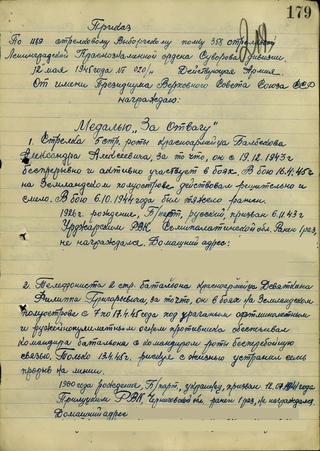 179
Приказ
По 1189 стрелковому Выборгскому полку 358 стрелковой
Ленинградской Краснознаменной ордена Суворова дивизии
12 мая 1945 года № 020/н Действующая Армия
От имени Президиума Верховного Совета Союза ССР
награждаю:
Медалью „За Отвагу"
1. Стрелка 5 стр. роты красноармейца
Александра Алексеевича, за то что, он с 19.12.1943 г
беспрерывно и активно участвует в боях. В бою 16.4.45 г
на Земландском полуострове действовал решительно и
смело. В бою 6.10.1944 года был тяжело ранен.
1926 г. рождения, Б/парт, русский, призван 6.11.43 г
Урджарским РВК, Семипалатинской обл. Ранен 1 раз,
не награждался. Домашний адрес:
2. Телефониста 2 стр. батальона красноармейца Девяткина
Филиппа за то что, он в боях на Земландском
полуострове с 7 по 17.4.45 года под ураганным артминометным
и ружейнопулеметным огнем противника обеспечивал
командира батальона с командиром роты бесперебойную
связью. Только 13.4.45 г. рискуя жизнью устранил семь
прорыв на линии.
1900 года рождения, Б/парт, украинец, призван
Прилуцким РВК ранен 1 раз, не награждался.
Домашний адрес